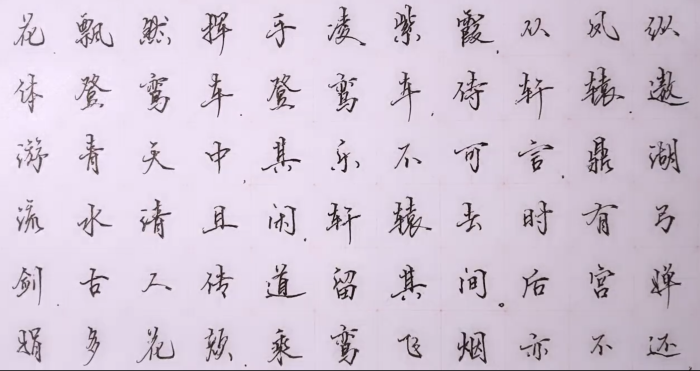 花飘然挥手凌紫霞,从风纵
体登鸾车登鸾车,侍轩辕,遨
游青天中,其乐不可言,鼎湖
流水清且闲,轩辕去时有弓
剑,古人传道留其间。后宫婵
娟多花颜乘鸾飞烟亦不还